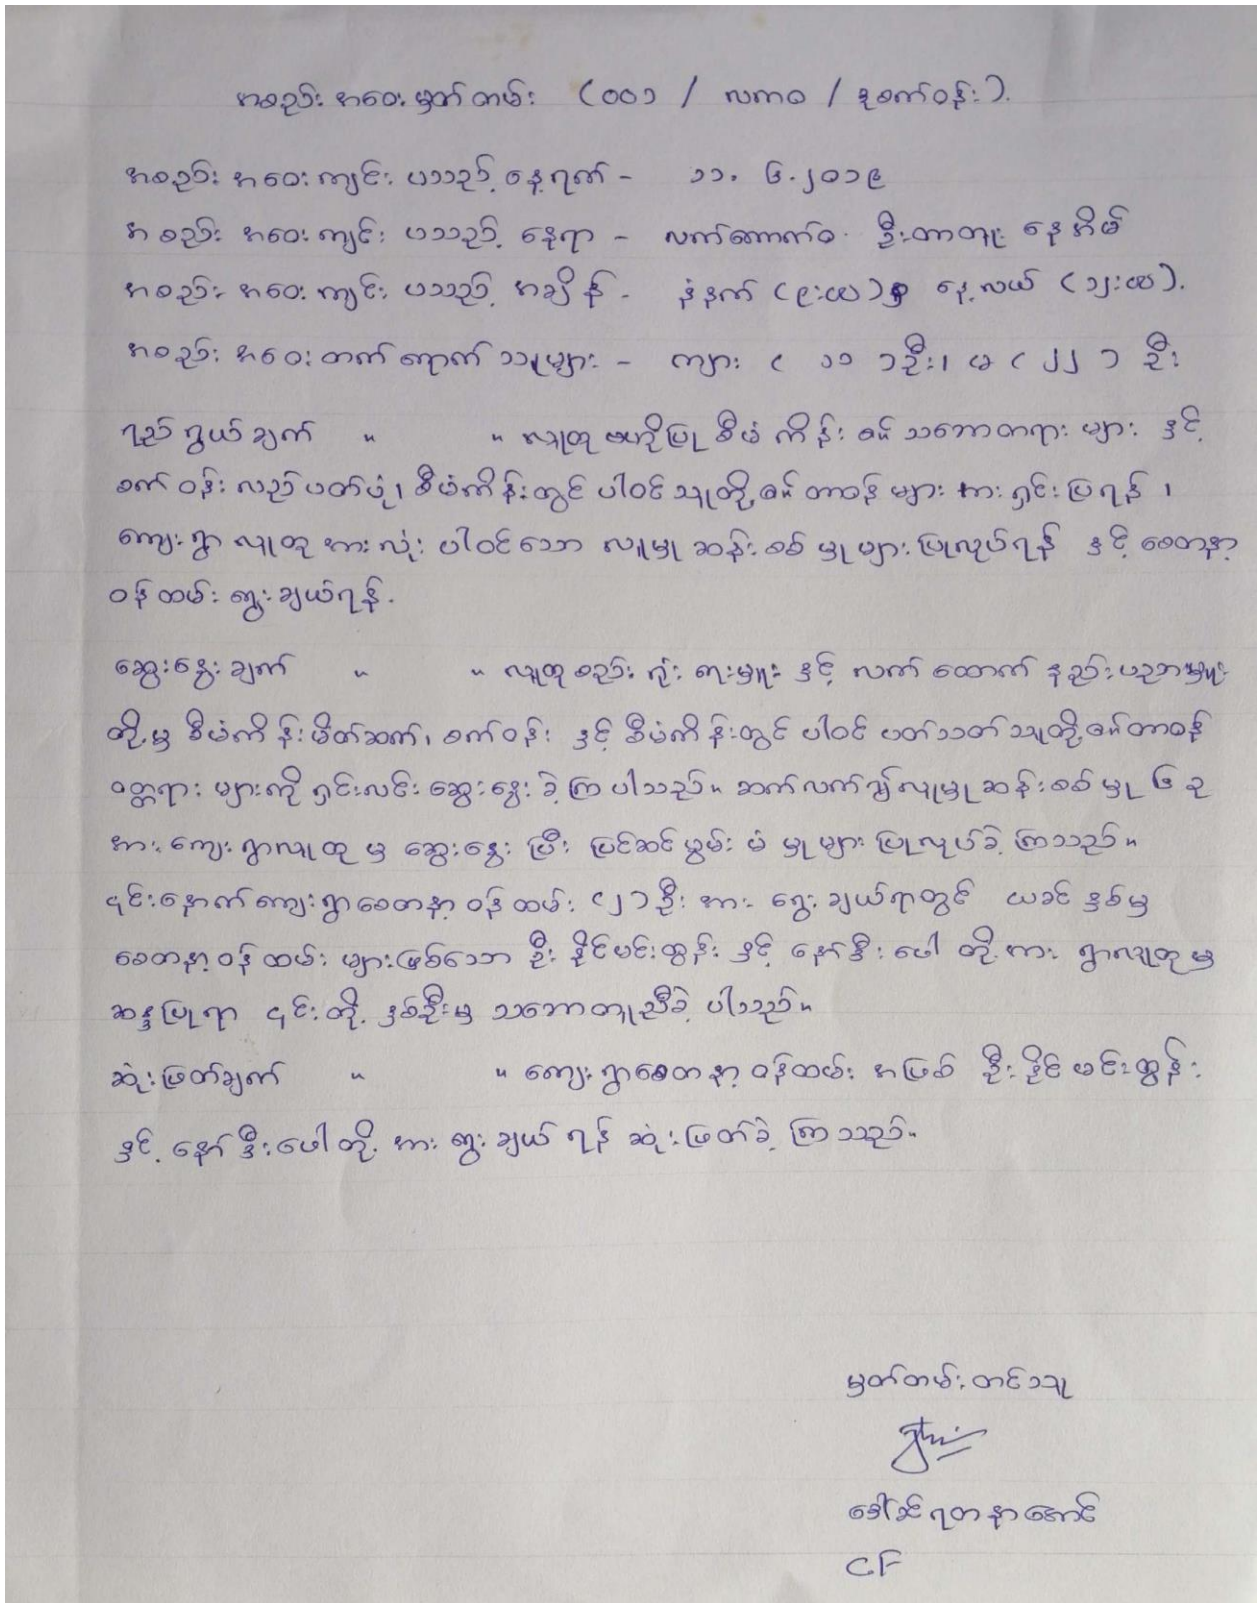 အစည်းအဝေးမှတ်တမ်း (၀၀၁ / လကဝ / ဒုစက်ဝန်း).
အစည်းအဝေးကျင်းပသည့်နေ့ရက် - ၁၁.၆.၂၀၁၉
အစည်းအဝေးကျင်းပသည့်နေရာ - လက်ထောက် ဦးတာတူး နေအိမ်
အစည်းအဝေးကျင်းပသည့်အချိန် - နံနက် (၉:၀၀)မှ နေ့လယ် (၁၂:၀၀).
အစည်းအဝေးတက်ရောက်သူများ - ကျား (၁၁)ဦး၊ မ (၂၂)ဦး
ရည်ရွယ်ချက် ။ ။ လူထုဗဟိုပြုစီမံကိန်း၏ သဘောတရားများ နှင့်
စက်ဝန်းလည်ပတ်ပုံ၊ စီမံကိန်းတွင်ပါဝင်သူတို့၏တာဝန်များအားရှင်းပြရန်၊
ကျေးရွာလူထုအားလုံးပါဝင်သော လူမှုဆန်းစစ်မှုများပြုလုပ်ရန် နှင့် စေတနာ့
ဝန်ထမ်းရွေးချယ်ရန်.
ဆွေးနွေးချက် ။ ။ လူထုစည်းရုံးရေးမှူး နှင့် လက်ထောက်နည်းပညာမှူး
တို့မှ စီမံကိန်းမိတ်ဆက်၊ စက်ဝန်း နှင့် စီမံကိန်းတွင် ပါဝင်ပတ်သတ်သူတို့၏တာဝန်
ဝတ္တရားများကိုရှင်းလင်းဆွေးနွေးခဲ့ကြပါသည်။ ဆက်လက်၍လူမှုဆန်းစစ်မှု ၆ ခု
အားကျေးရွာလူထုမှ ဆွေးနွေးပြီး ပြင်ဆင်မွမ်းမံမှုများ ပြုလုပ်ခဲ့ကြသည်။
၎င်းနောက်ကျေးရွာစေတနာ့ဝန်ထမ်း (၂)ဦးအား ရွေးချယ်ရာတွင် ယခင်နှစ်မှ
စေတနာ့ဝန်ထမ်းများဖြစ်သော ဦးနိုင်မင်းထွန်း နှင့် နော်ဒီးဖေါတို့အား ရွာလူထုမှ
ဆန္ဒပြုရာ ၎င်းတို့နှစ်ဦးမှ သဘောတူညီခဲ့ပါသည်။
ဆုံးဖြတ်ချက် ။ ။ ကျေးရွာစေတနာ့ဝန်ထမ်းအဖြစ် ဦးနိုင်မင်းထွန်း
နှင့် နော်ဒီးဖေါတို့အား ရွေးချယ်ရန် ဆုံးဖြတ်ခဲ့ကြသည်။
မှတ်တမ်းတင်သူ
ဒေါ်ခင်ရတနာအောင်
CF